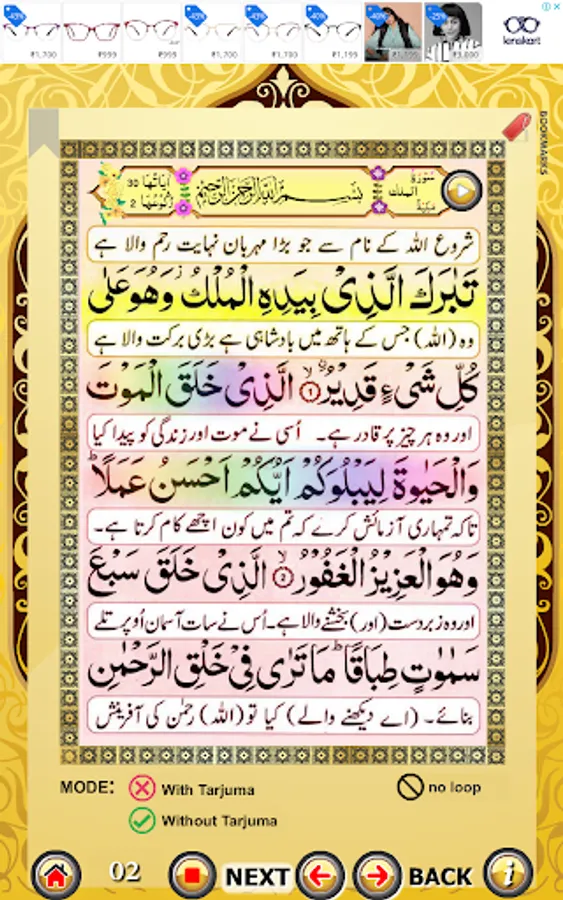 -45% -43% -40% -40% -25%
₹1,700 ₹999 ₹999 ₹1,700 ₹1,700 ₹1,199 ₹1,199 ₹3,000
lenskart
BOOKMARKS
سورة الملك مكية
بِسْمِ اللهِ الرَّحْمٰنِ الرَّحِيْمِ
اٰيَاتُهَا 30
رُكُوْعُهَا 2
شروع اللہ کے نام سے جو بڑا مہربان نہایت رحم والا ہے
تَبٰرَكَ الَّذِىْ بِيَدِهِ الْمُلْكُ ز وَهُوَ عَلٰى
وہ (اللہ) جس کے ہاتھ میں بادشاہی ہے بڑی برکت والا ہے
كُلِّ شَىْءٍ قَدِيْرُ ۙ﴿۱﴾ الَّذِىْ خَلَقَ الْمَوْتَ
اور وہ ہر چیز پر قادر ہے۔ اُسی نے موت اور زندگی کو پیدا کیا
وَالْحَيٰوةَ لِيَبْلُوَكُمْ اَيُّكُمْ اَحْسَنُ عَمَلًا ؕ
تاکہ تمہاری آزمائش کرے کہ تم میں کون اچھے کام کرتا ہے۔
وَهُوَ الْعَزِيْزُ الْغَفُوْرُ ۙ﴿۲﴾ الَّذِىْ خَلَقَ سَبْعَ
اور وہ زبردست (اور) بخشنے والا ہے۔ اُس نے سات آسمان اُوپر تلے
سَمٰوٰتٍ طِبَاقًا ؕ مَا تَرٰى فِىْ خَلْقِ الرَّحْمٰنِ
بنائے۔ (اے دیکھنے والے) کیا تو (اللہ) رحمٰن کی آفرینش
MODE: With Tarjuma no loop
Without Tarjuma
02 NEXT BACK i